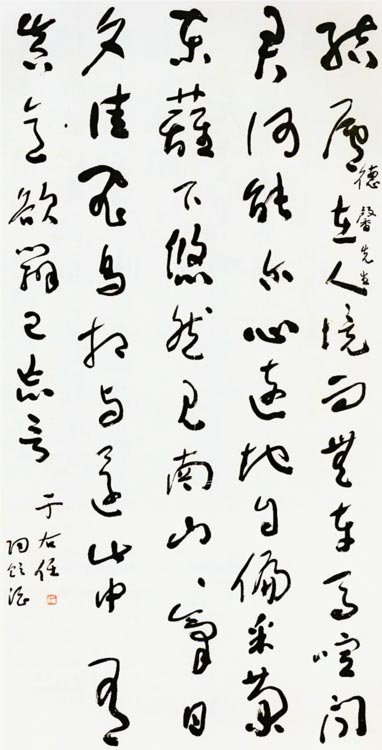 結廬在人境而無車馬喧問
德馨先生
君何能尔心遠地自偏采菊
東籬下悠然見南山、氣日
夕佳飛鳥相与還此中有
真意欲辯已忘言
于右任
陶飲酒